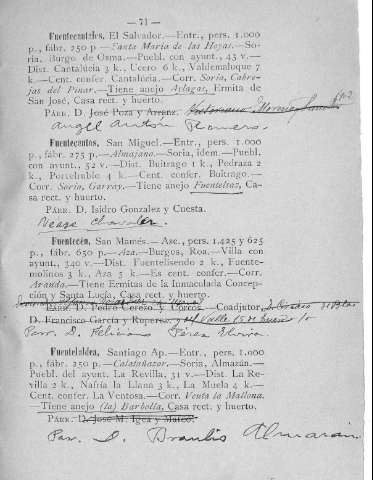 — 71 —
Fuentecantales, El Salvador.—Entr., pers. 1.000
p., fábr. 250 p—Santa María de las Hoyas.—So-
ria, Burgo de Osma.—Puebl. con ayunt., 43 v.—
Dist. Cantalúcia 3 k., Ucero 6 k., Valdemaluque 7
k.—Cent. confer. Cantalúcia.—Corr. Soria, Cabre-
jas del Pinar.—Tiene anejo Aylagas, Ermita de
San José, Casa rect. y huerto.
Párr. D. José Poza y Arranz.
Angel Antón Romero.
Fuentecantos, San Miguel.—Entr., pers. 1.000
p., fábr. 275 p.—Almajano.—Soria, idem.—Puebl.
con ayunt., 52 v.—Dist. Buitrago 1 k., Pedraza 2
k., Portelrubio 4 k.—Cent. confer. Buitrago.—
Cor. Soria, Garray.—Tiene anejo Fuentelsaz, Ca-
sa rect. y huerto.
Párr. D. Isidro Gonzalez y Cuesta.
Fuentecén, San Mamés.—Asc., pers. 1.425 y 625
p., fábr. 650 p—Aza.—Burgos, Roa.—Villa con
ayunt., 340 v.—Dist. Fuentelisendo 2 k., Fuente-
molinos 3 k., Aza 5 k.—Es cent. confer.—Corr.
Aranda.—Tiene Ermitas de la Inmaculada Concep-
ción y Santa Lucía, Casa rect. y huerto.
Párr. D. Pedro Cerezo y Corcos.—Coadjutor,
D. Francisco García y Ruperez.
Parr. D. Feliciano Pérez
Fuentelaldea, Santiago Ap.—Entr., pers. 1.000
p., fábr. 250 p.—Calatañazor.—Soria, Almazán.—
Puebl. del ayunt. La Revilla, 31 v.—Dist. La Re-
villa 2 k., Nafría la Llana 3 k., La Muela 4 k.—
Cent. confer. La Ventosa.—Corr. Venta la Mallona.
—Tiene anejo (la) Barbolla, Casa rect. y huerto.
Párr. D. José M. Igea y Mateo.
Par. D. Braulio Almarán